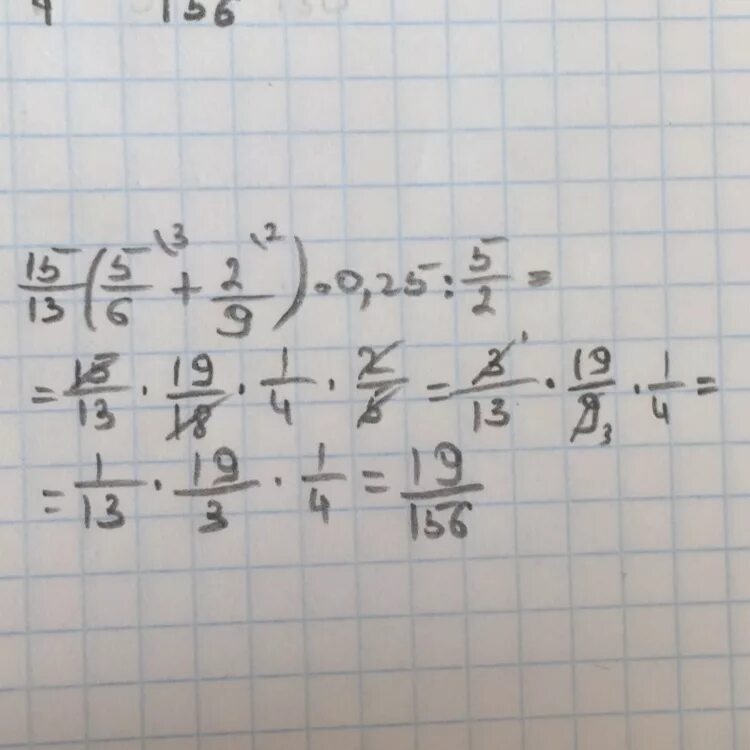 4 156
15/13 (5/6 \3 + 2/9 \2) · 0,25 : 5/2 =
= 15/13 · 19/18 · 1/4 · 2/5 = 3/13 1 · 19/9 3 · 1/4 =
= 1/13 · 19/3 · 1/4 = 19/156